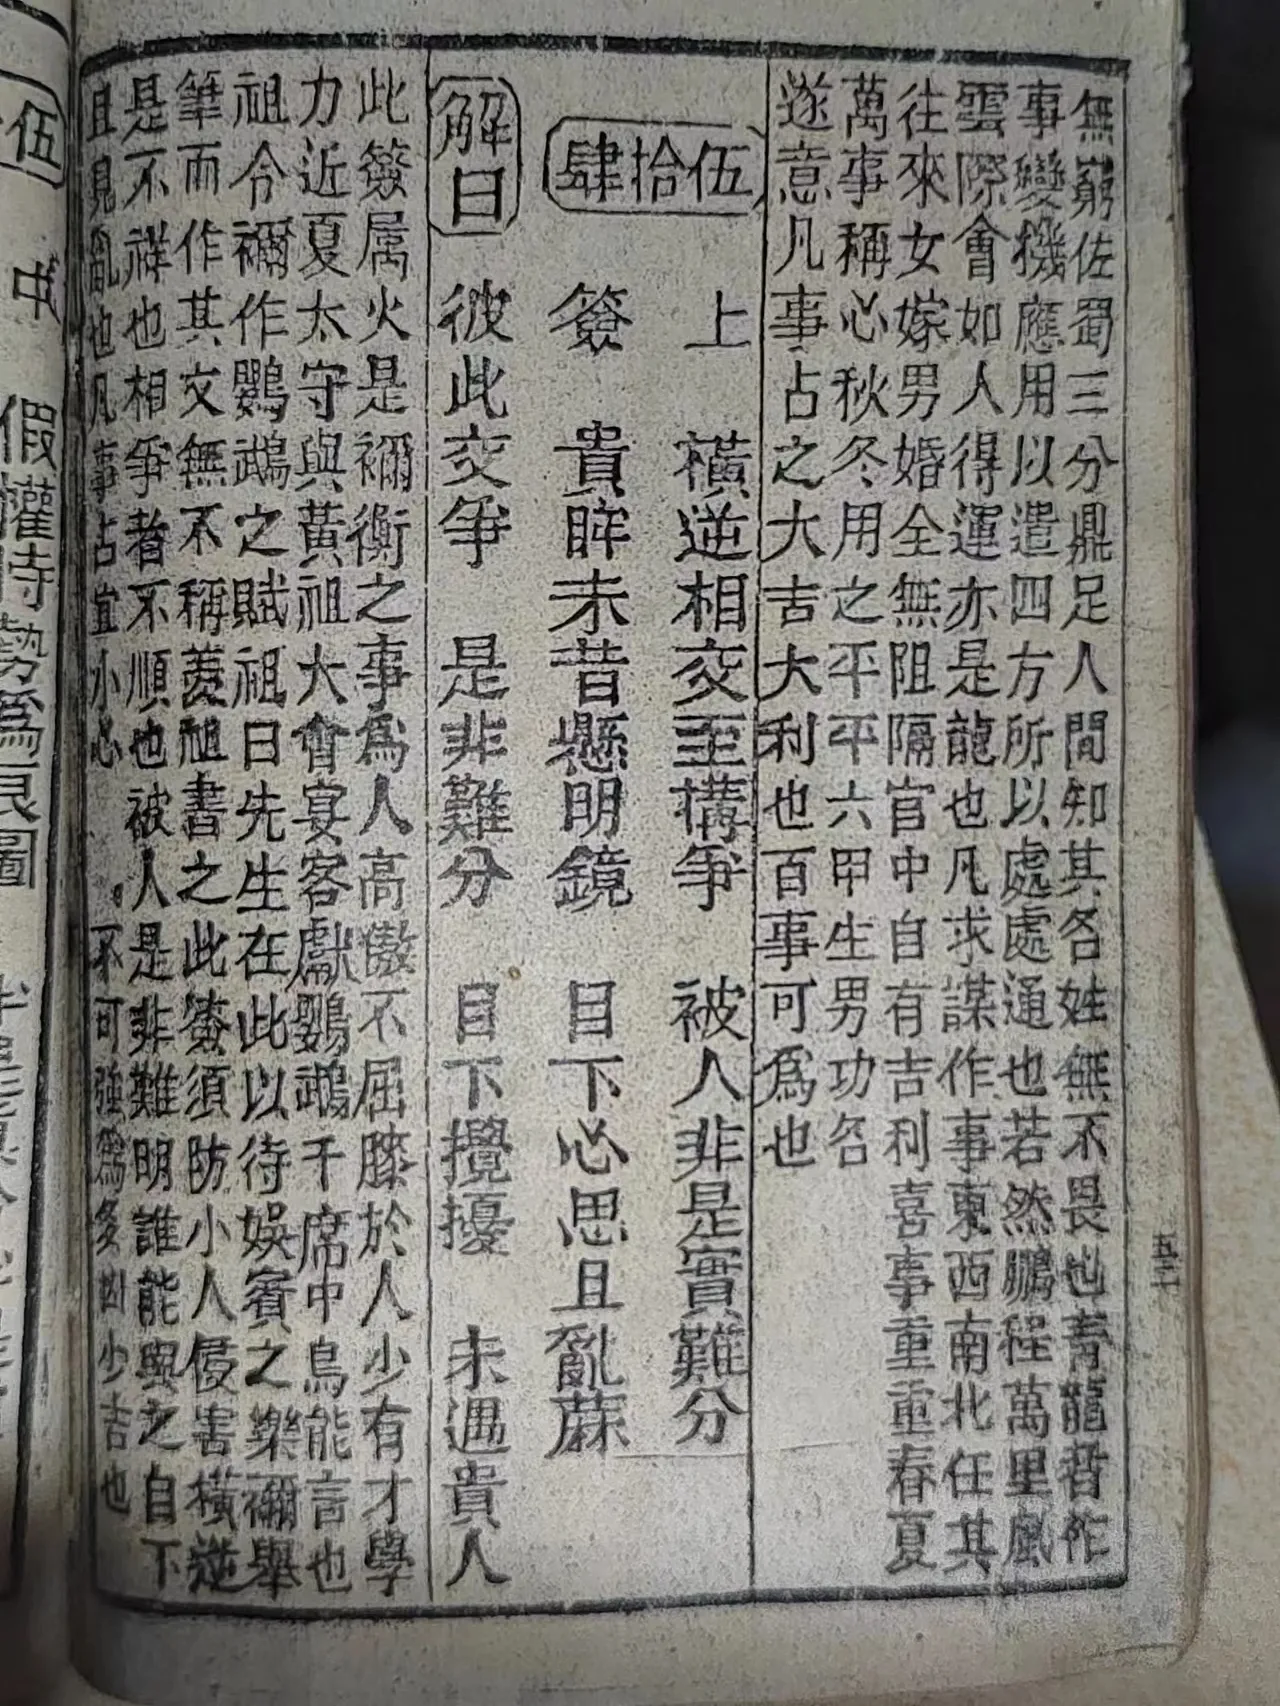 無窮佐蜀三分鼎足人間知其各姓無不畏也青龍者作
事變機應用以遣四方所以處處通也若然鵬程萬里風
雲際會如人得運亦是龍也凡求謀作事東西南北任其
往來女嫁男婚全無阻隔官中自有吉利喜事重重春夏
萬事稱心秋冬用之平平六甲生男功名
遂意凡事占之大吉大利也百事可為也
五二
伍拾肆
上 橫逆相交至搆爭 被人非是實難分
簽 貴眸未昔懸明鏡 目下心思且亂蔴
解曰 彼此交爭 是非難分 目下攪擾 未遇貴人
此簽属火是禰衡之事為人高傲不屈膝於人少有才學
力近夏太守與黃祖大會宴客獻鸚鵡于席中鳥能言也
祖令禰作鸚鵡之賦祖曰先生在此以待娛賓之樂禰舉
筆而作其文無不稱羨祖書之此簽須防小人侵害橫逆
是不祥也相爭者不順也被人是非難明誰能與之自下
且見亂也凡事占宜小心。不可強為多凶少吉也
伍
中 假權恃勢為良圖